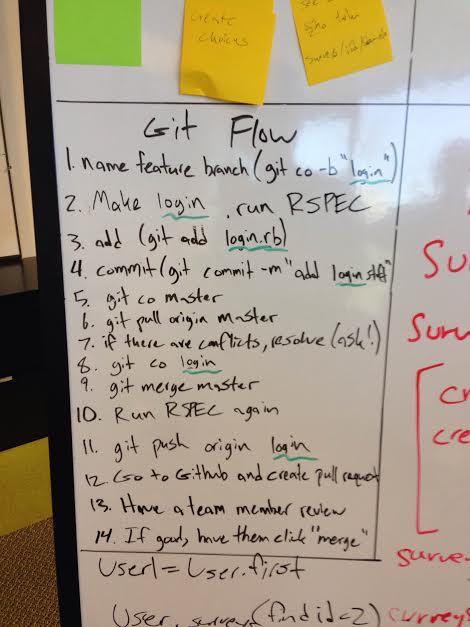 create
choices
Git Flow
1. name feature branch (git co -b "login")
2. Make login, run RSPEC
3. add (git add login.rb)
4. commit (git commit -m "add login stff"
5. git co master
6. git pull origin master
7. if there are conflicts, resolve (ask!)
8. git co login
9. git merge master
10. Run RSPEC again
11. git push origin login
12. Go to Github and create pull request
13. Have a team member review
14. If good, have them click "merge"
User1 = User.first
User. surveys (find id = 2) surveys
Su
Surv
cr
cre
surve